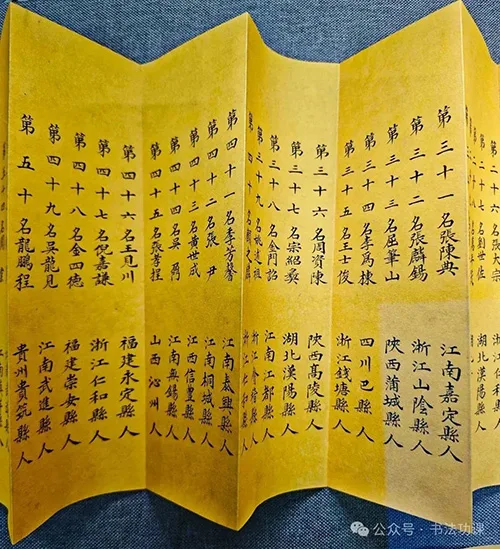 第三十一名張陳典 江南嘉定縣人
第三十二名張麟錫 浙江山陰縣人
第三十三名屈筆山 陝西蒲城縣人
第三十四名李為棟 四川巴縣人
第三十五名王士俊 浙江錢塘縣人
第三十六名周資陳 陝西高陵縣人
第三十七名宗紹 湖北漢陽縣人
第三十八名金門詔 江南江都縣人
第三十九名姚述祖 浙江會稽縣人
第四十名 浙江仁和縣人
第四十一名李芳馨 江南泰興縣人
第四十二名張尹 江南桐城縣人
第四十三名黃世成 江西信豐縣人
第四十四名吳 江南無錫縣人
第四十五名張孝捏 山西沁州人
第四十六名王見川 福建永定縣人
第四十七名倪嘉謙 浙江仁和縣人
第四十八名金四德 福建崇安縣人
第四十九名吳龍見 江南武進縣人
第五十名龍鵬程 貴州貴筑縣人
公众号·书法功课